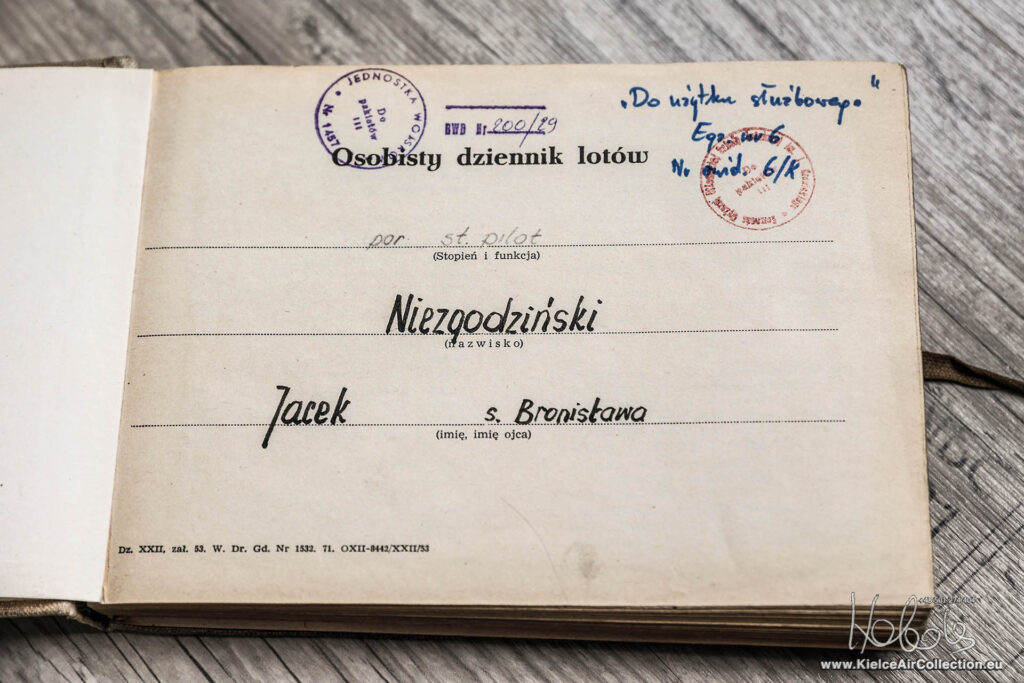 JEDNOSTKA WOJSKOWA
Nr 1457
Do pakietów III
BWD Nr 200/29
„Do użytku służbowego"
Egz. nr 6
Nr ewid. 6/K
Do pakietów III
Osobisty dziennik lotów
por st. pilot
(Stopień i funkcja)
Niezgodziński
(nazwisko)
Jacek s. Bronisława
(imię, imię ojca)
Dz. XXII, zał. 53. W. Dr. Gd. Nr 1532. 71. OXII-8442/XXII/53
www.KielceAirCollection.eu